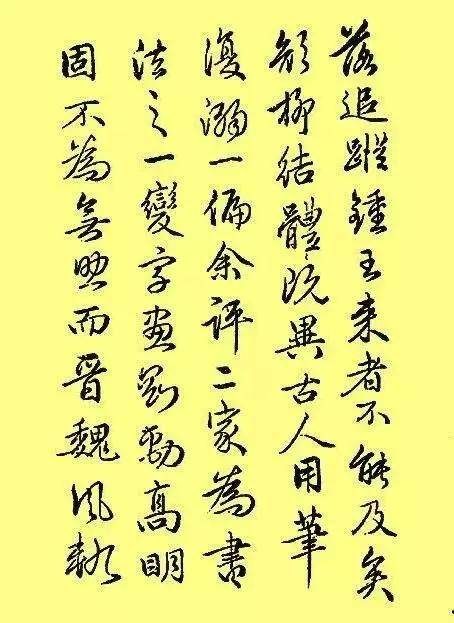 落追蹤鍾王来者不能及矣
顏柳结體既異古人用筆
復溺一偏余評二家為書
法之一變字畫剛勁高明
固不為無而晉魏風軌